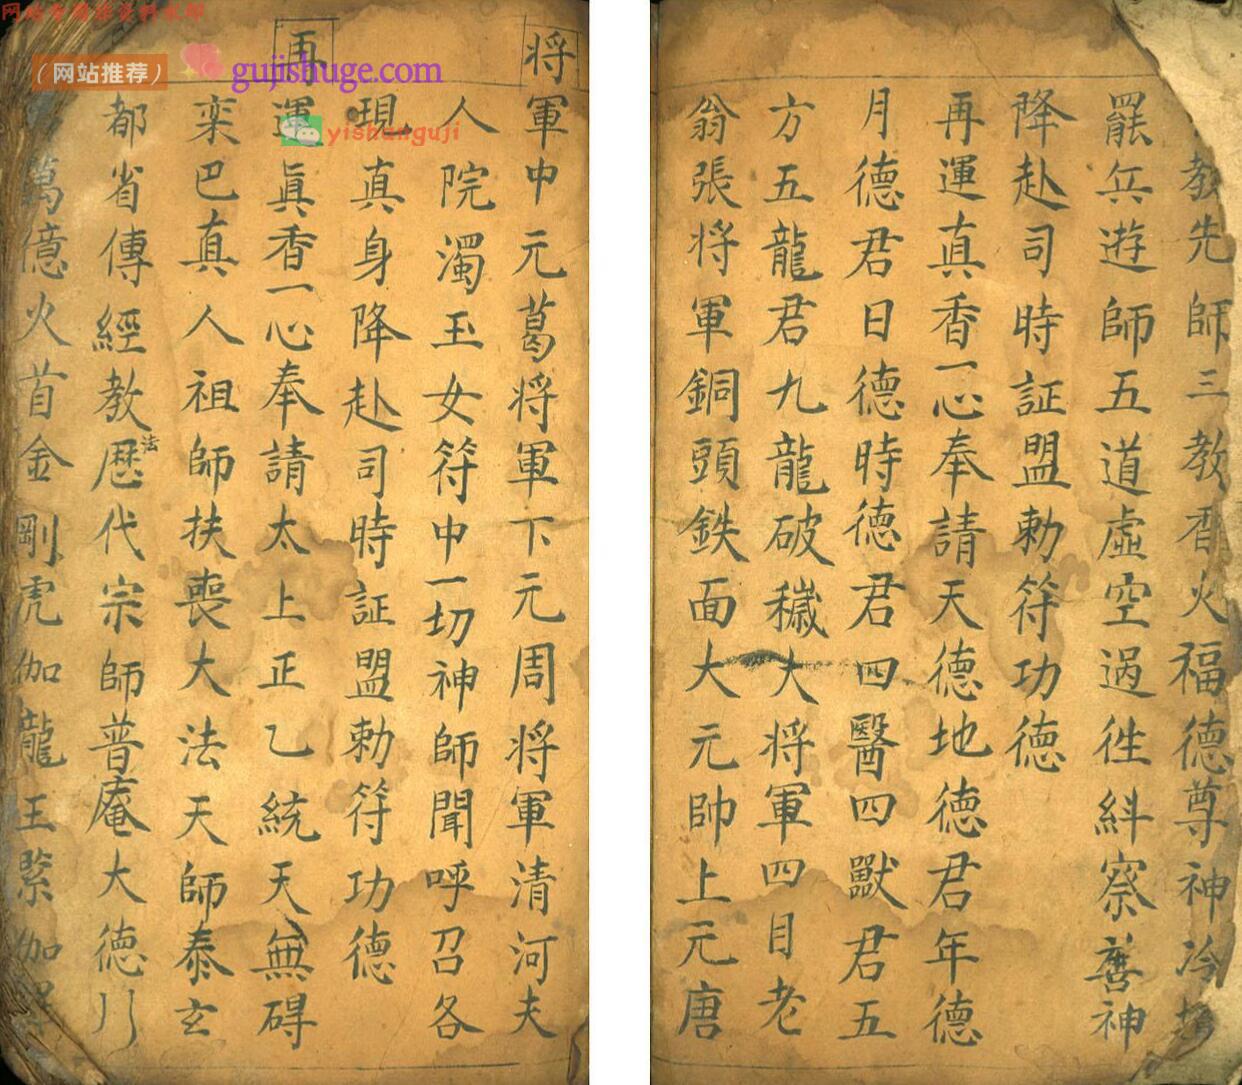 网站专用非资料水印
（网站推荐）
gujishuge.com
yishanguji
教先師三教香火福德尊神冷
罷兵遊師五道虛空過徃糾察善神
降赴司時証盟勅符功德
再運真香一心奉請天德地德君年德
月德君日德時德君四醫四獸君五
方五龍君九龍破穢大将軍四目老
翁張将軍銅頭鉄面大元帥上元唐
将
軍中元葛将軍下元周将軍清河夫
人院濁玉女符中一切神師聞呼召各
現真身降赴司時証盟勅符功德
再
運眞香一心奉請太上正乙統天無碍
栾巴真人祖師扶喪大法天師泰玄
都省傳經教法歴代宗師普庵大德
萬億火首金剛虎伽龍王緊伽